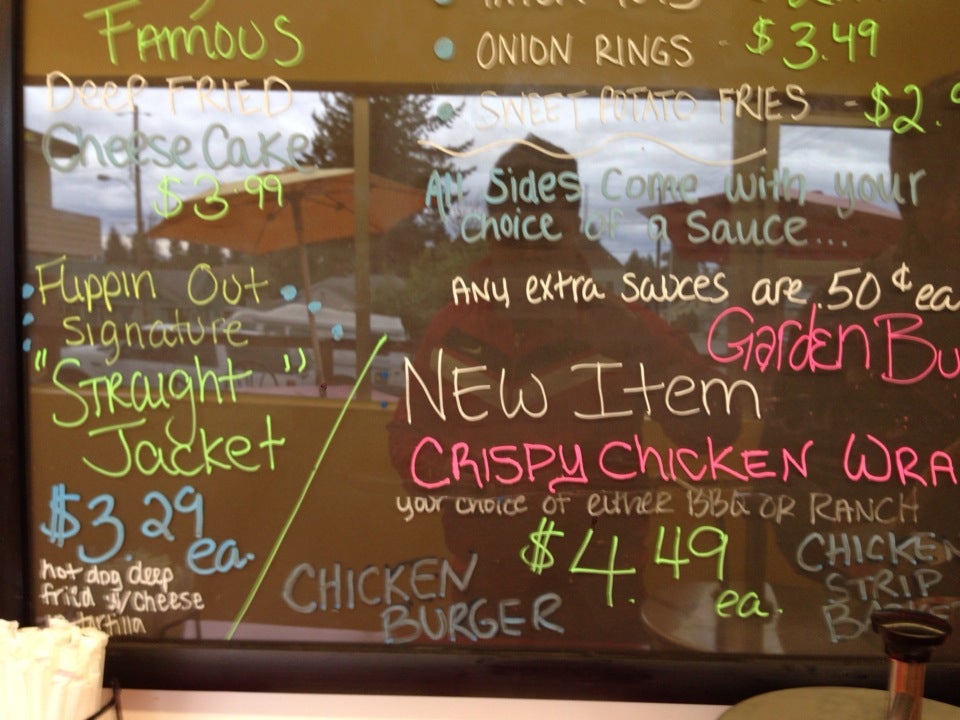 Famous
Deep FRIED
Cheese Cake
$3.99
Flippin Out
signature
"Straight"
Jacket
$3.29
ea.
hot dog deep
friid w/cheese
tortilla
ONION RINGS - $3.49
SWEET POTATO FRIES - $2.9
All Sides Come with your
choice of a Sauce...
ANY extra sauces are .50¢ ea
Garden Bu
NEW Item
CRISPY CHICKEN WRA
your choice of either BBQ OR RANCH
$4.49
ea.
CHICKEN
BURGER
CHICKEN
STRIP